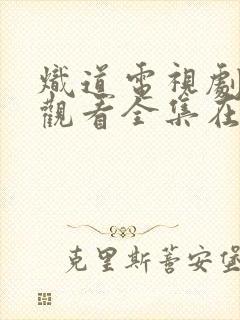 熾道電視劇
觀看全集在
克里斯蒈安堡